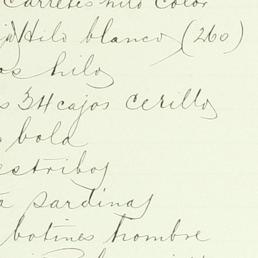 carretes hilo color
Hilo blanco (260)
os hilo
s 34 cajos cerillos
bola
estribos
sardinas
botines hombre